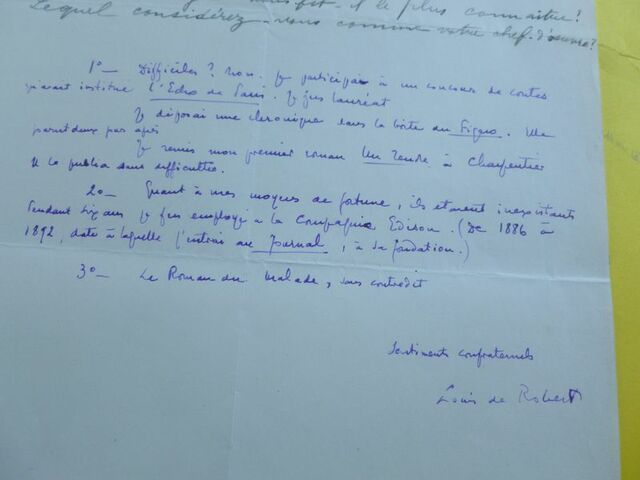 fit-il le plus connaître?
Lequel considérez-vous comme votre chef-d'œuvre?
1º— Difficiles? non. Je participai à un concours de contes
qu'avait institué L'Echo de Paris. Je fus lauréat
Je déposai une chronique dans la boîte du Figaro. Elle
parut deux jours après
Je remis mon premier roman Un tendre à Charpentier
qui le publia sans difficultés.
2o— Quant à mes moyens de fortune, ils étaient inexistants
Pendant six ans je fus employé à la Compagnie Edison. (De 1886 à
1892, date à laquelle j'entrai au Journal, à sa fondation.)
3º— Le Roman du malade, sans contredit
Sentiments confraternels
Louis de Robert